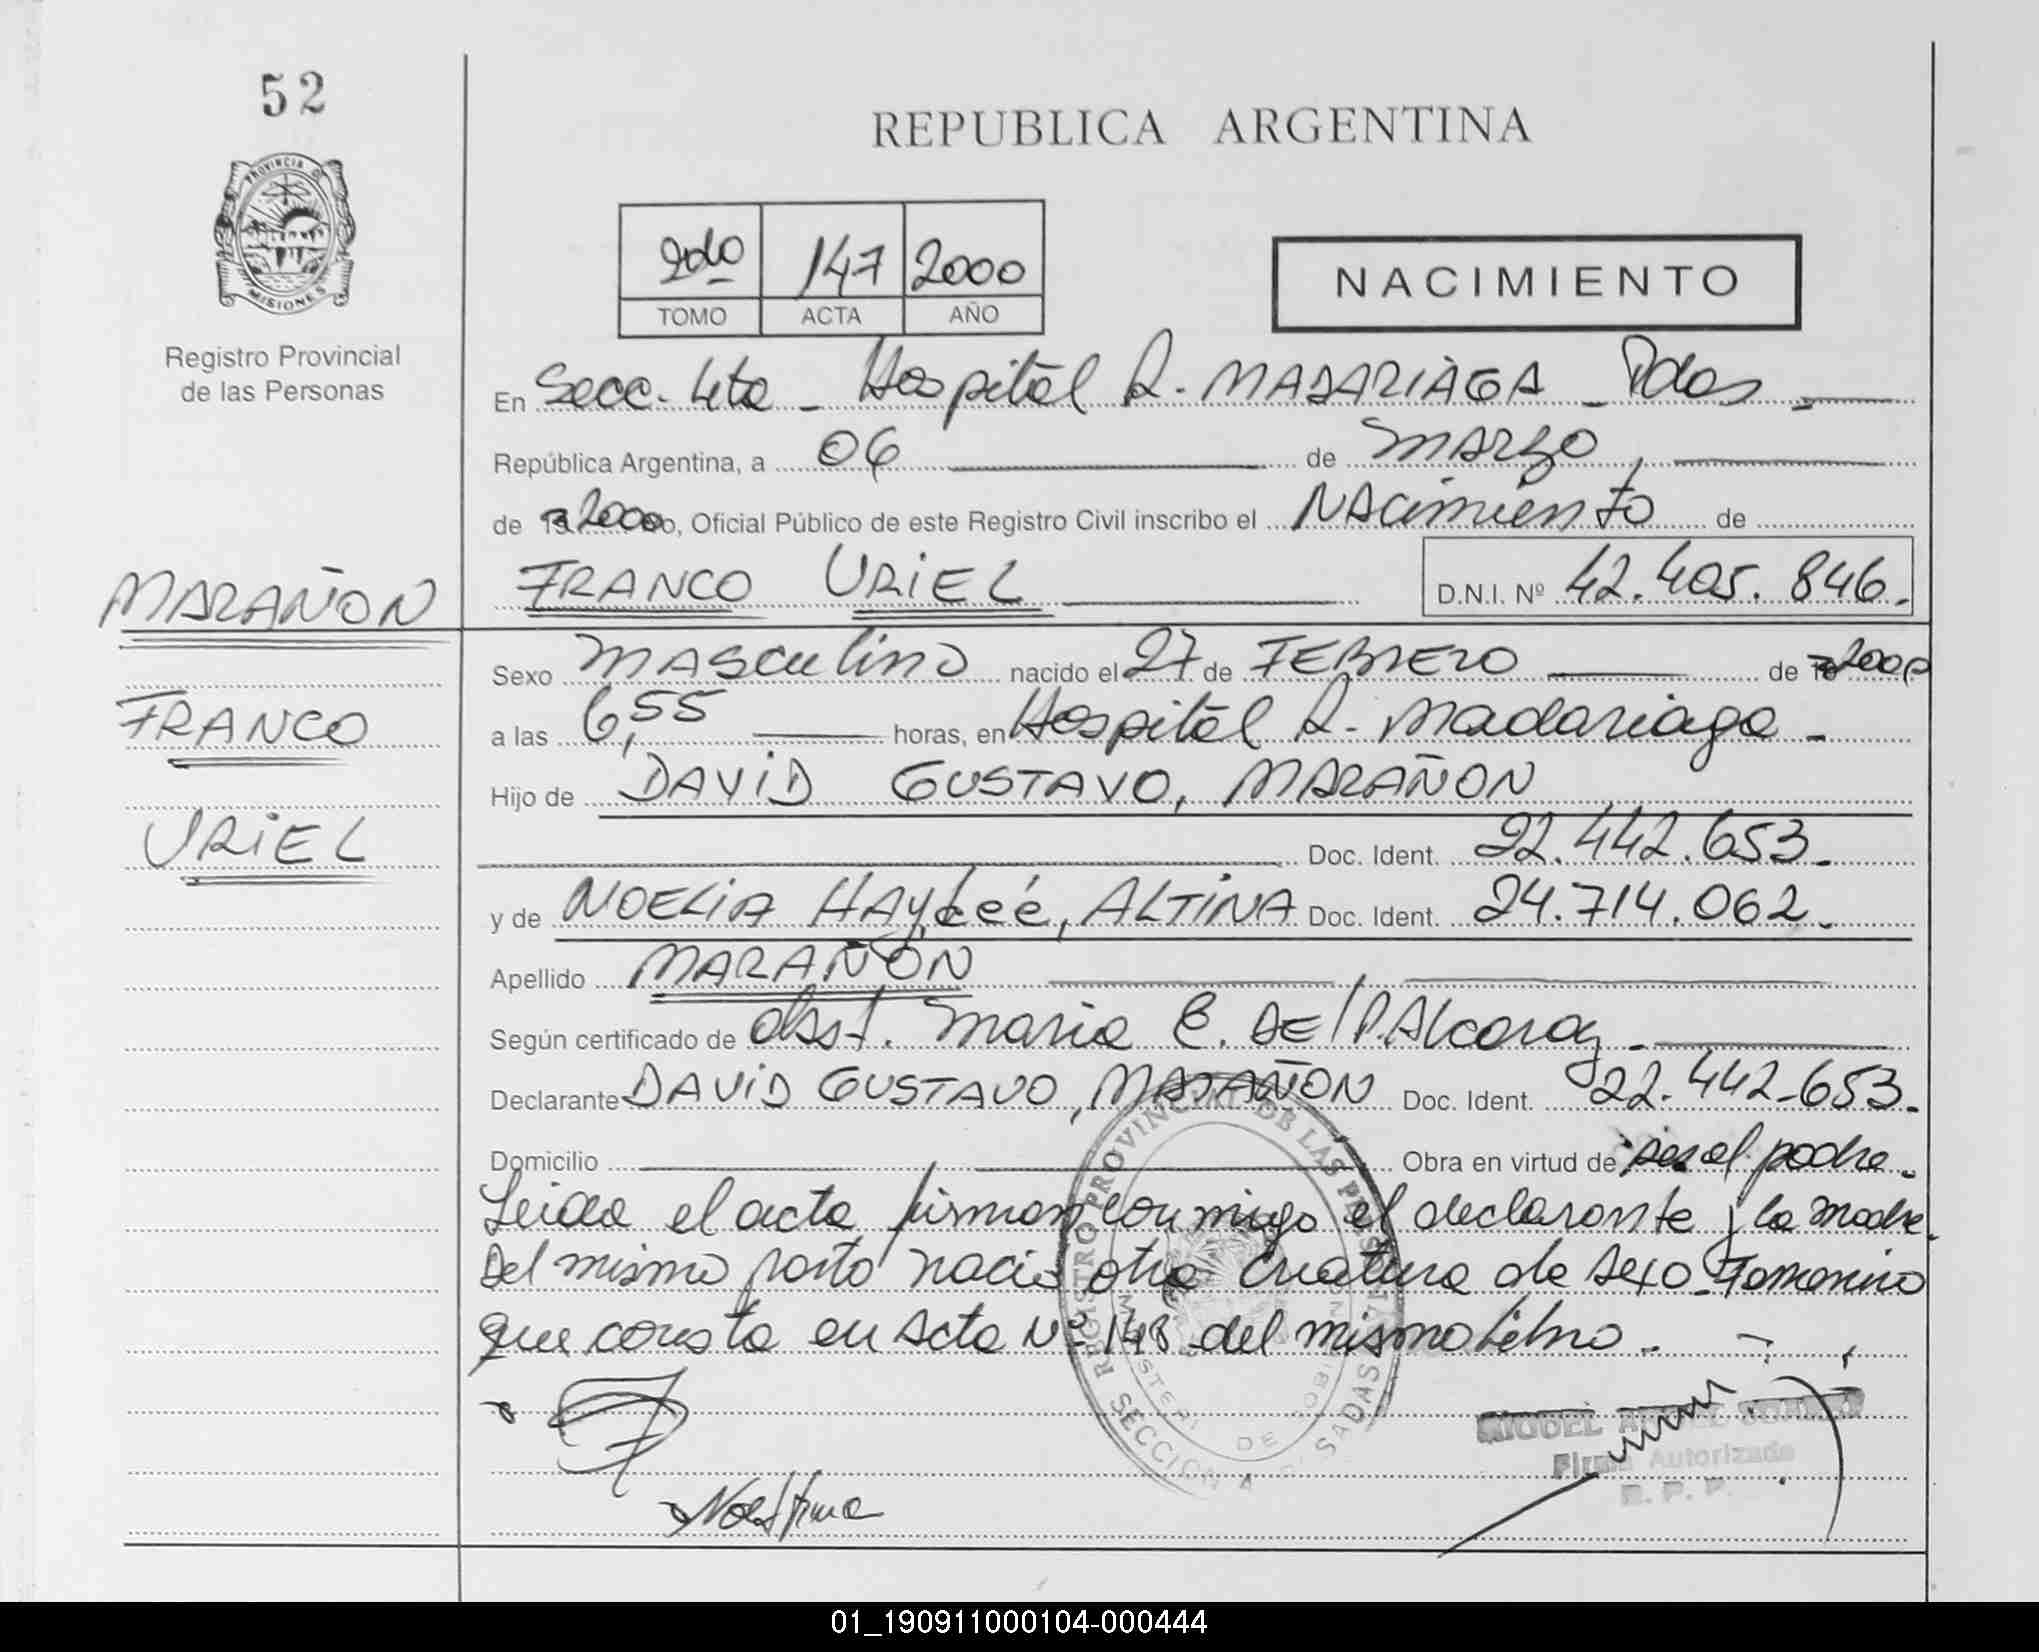 52
REPUBLICA ARGENTINA
PROVINCIA D
MISIONES
Registro Provincial
de las Personas
2do 147 2000
TOMO ACTA AÑO
NACIMIENTO
En Secc. 4ta - Hospital R. MADARIAGA - Pdas -
República Argentina, a 06 de MARZO,
de 2000, Oficial Público de este Registro Civil inscribo el NACimiento de
MARAÑON
FRANCO URIEL D.N.I. Nº 42.405.846.
Sexo MASCulino nacido el 27 de FEBRERO de 2000
FRANCO
a las 6,55 horas, en Hospital R. Madariaga -
Hijo de DAVID GUSTAVO, MARAÑON
URIEL
Doc. Ident. 22.442.653.
y de NOELIA HAYdeé, ALTINA Doc. Ident. 24.714.062.
Apellido MARAÑON
Según certificado de obst. Maria E. DEl P. Alcaraz -
Declarante DAVID GUSTAVO, MARAÑON Doc. Ident. 22.442-653.
Domicilio Obra en virtud de ser el padre.
Leida el acta firman conmigo el declarante y la madre.
Del mismo parto nacio otra criatura de sexo Femenino
que consta en acta Nº 148 del mismo libro.
REGISTRO PROVINCIAL DE LAS PERSONAS
MIGUEL
Firma Autorizada
R. P. P.
01_190911000104-000444